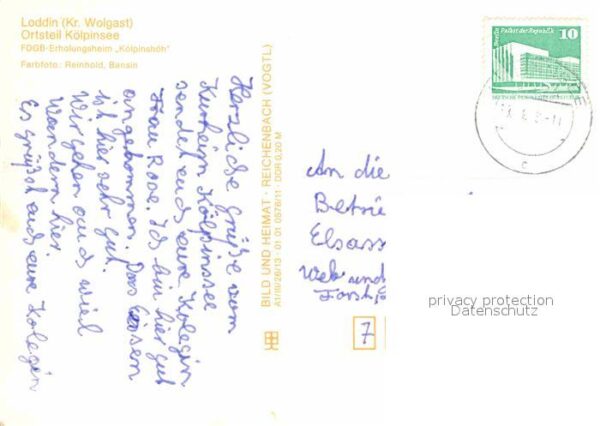 Loddin (Kr. Wolgast)
Ortsteil Kölpinsee
FDGB-Erholungsheim „Kölpinshöh"
Farbfoto: Reinhold, Bansin
Herzliche Grüße vom
Kurheim Kölpinsee
sendet euch eure Kolegin
Frau Rose. Ich bin hier gut
angekommen. Das Essen
ist hier sehr gut.
Wir gehen auch viel
Wandern hier.
Es grüßt euch eure Kolegin
BILD UND HEIMAT · REICHENBACH (VOGTL)
A1/III/26/13 · 01 01 0576/11 · DDR 0,20 M
Berlin Palast der Republik
10
DEUTSCHE DEMOKRATISCHE REPUBLIK
c
An die
Betrie
Elsass
Web und
Forst
7
privacy protection
Datenschutz